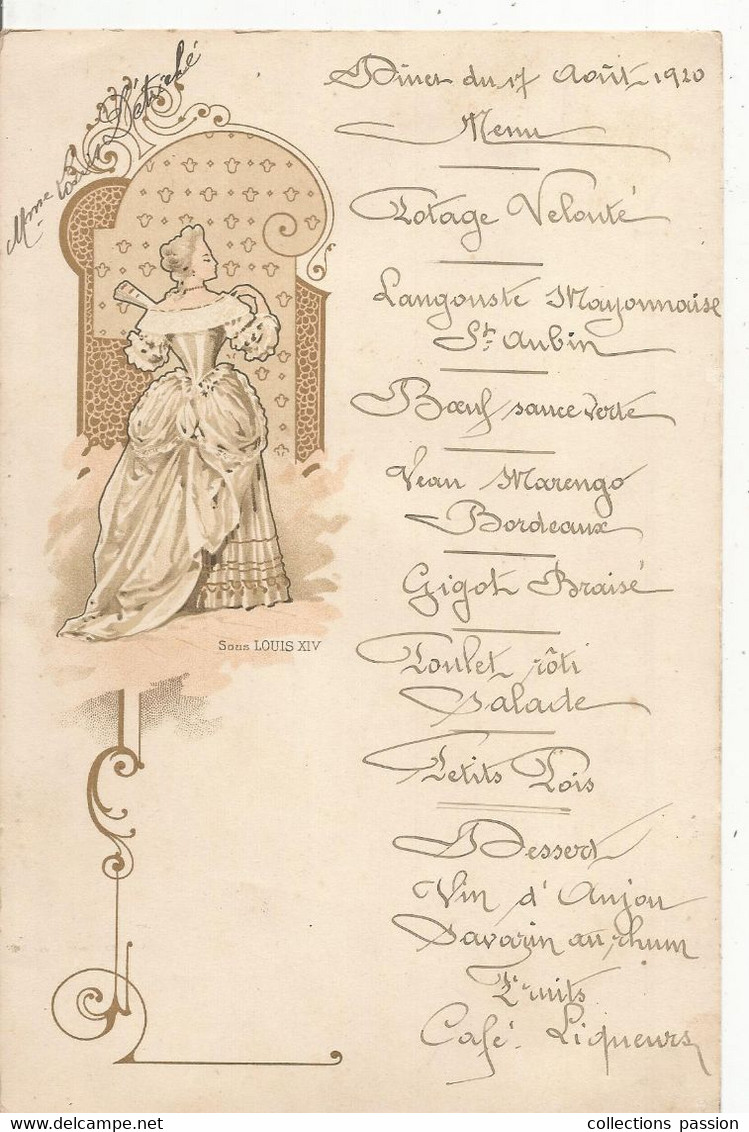 Mme Détrché
Dîner du 17 Août 1920
Menu
Potage Velouté
Langouste Mayonnaise
St. Aubin
Bœuf sauce verte
Veau Marengo
Bordeaux
Gigot Braisé
Poulet rôti
Salade
Petits Pois
Dessert
Vin d'Anjou
Savarin au rhum
Fruits
Café. Liqueurs
Sous LOUIS XIV
collections passion